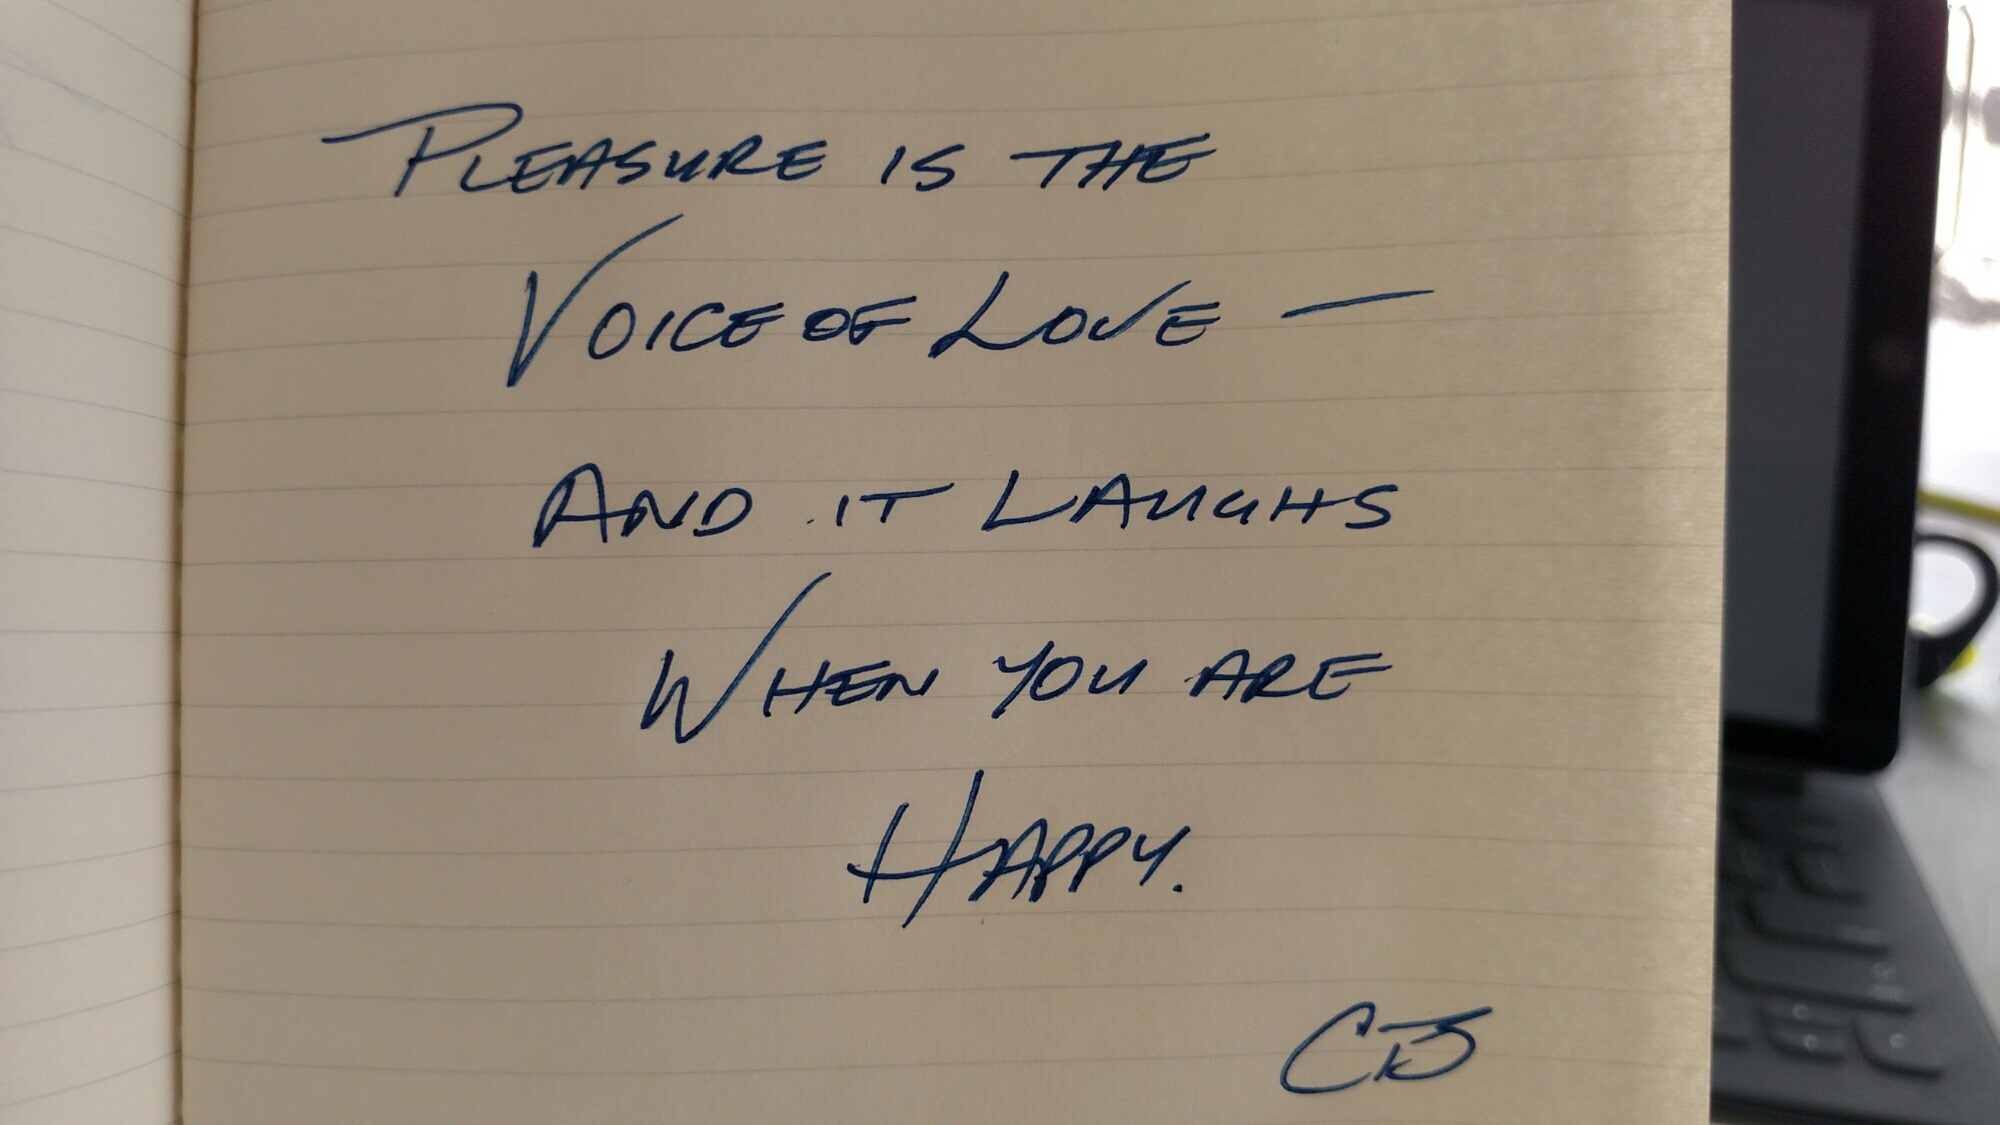 PLEASURE IS THE
VOICE OF LOVE —
AND IT LAUGHS
WHEN YOU ARE
HAPPY.